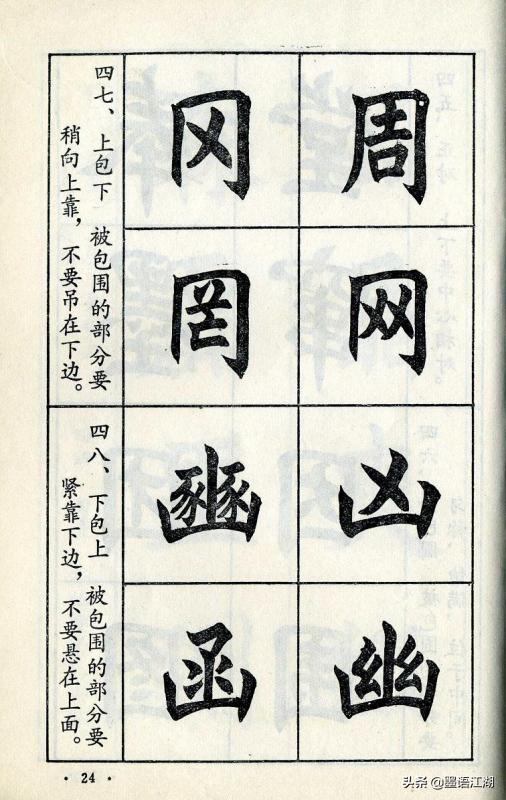 周
网
冈
罔
四七、上包下 被包围的部分要
稍向上靠，不要吊在下边。
凶
幽
豳
函
四八、下包上 被包围的部分要
紧靠下边，不要悬在上面。
·24·
头条 @墨语江湖